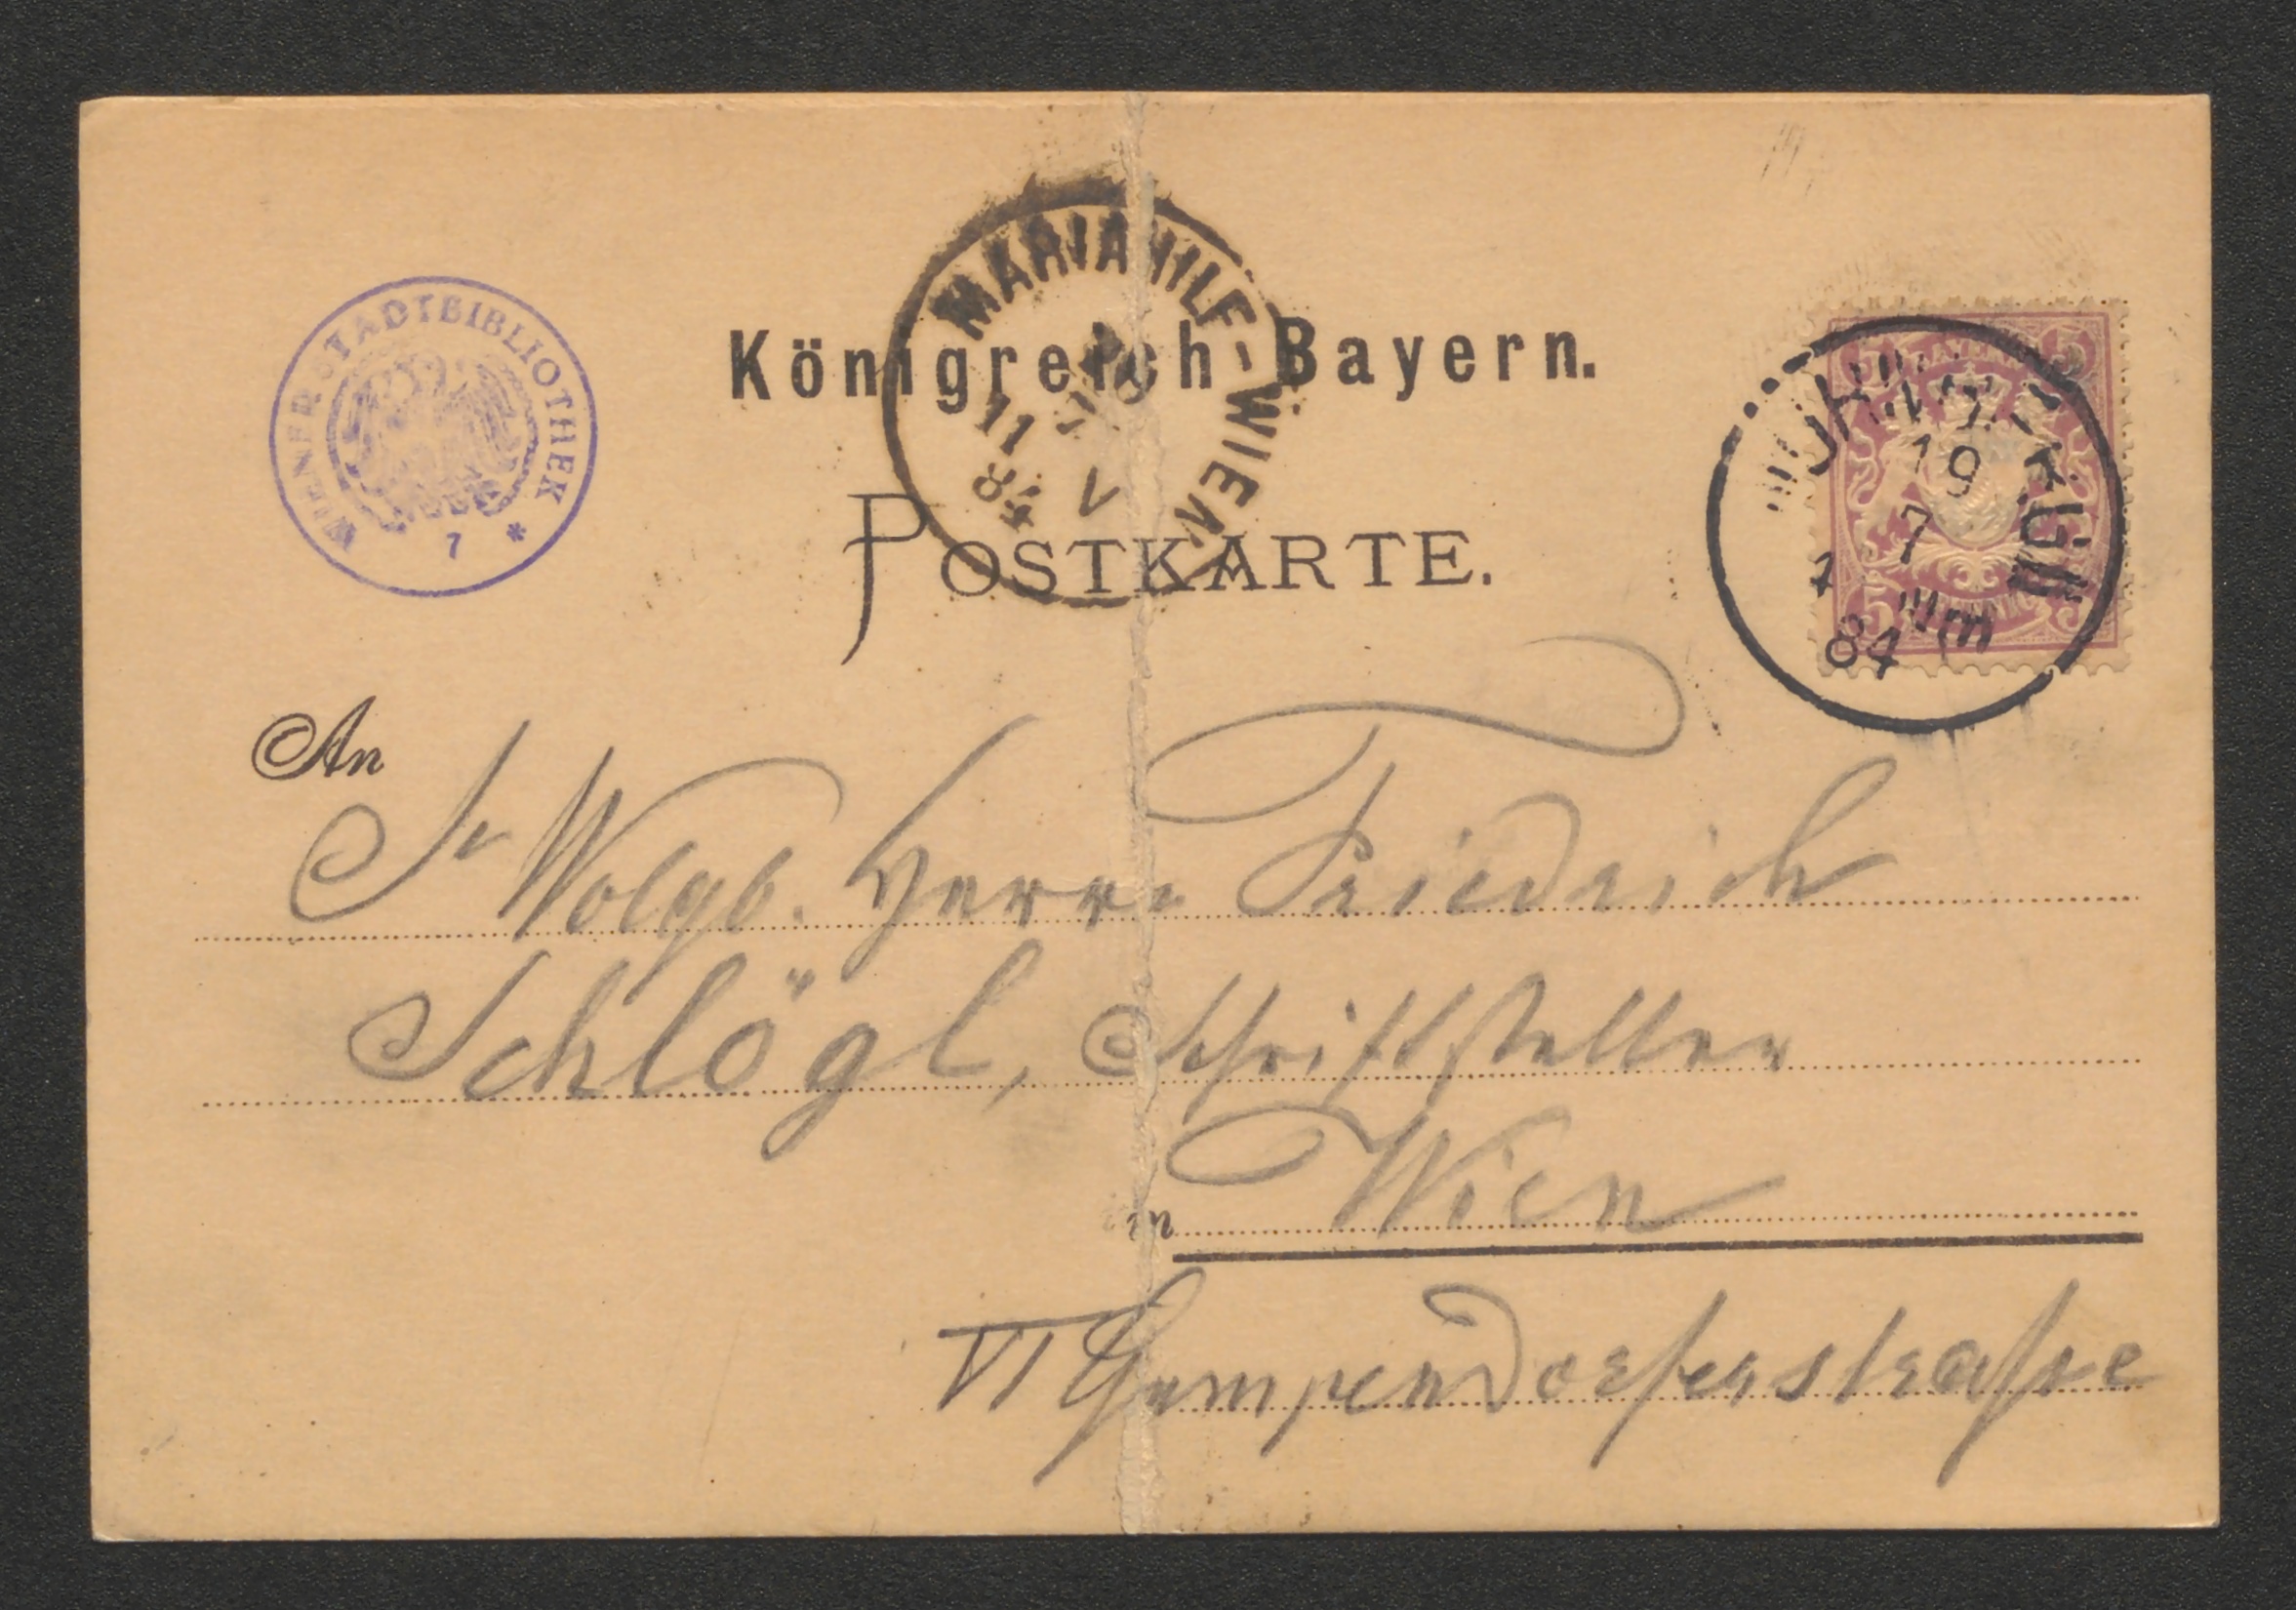 WIENER STADTBIBLIOTHEK * 7
MARIAHILF-WIEN
11 V
84
Königreich Bayern.
POSTKARTE.
19
7
84
5 5
5 5
An
Sr Wolgb. Herrn Friedrich
Schlögl, Schriftsteller
in Wien
VI Gumpendorferstrasse